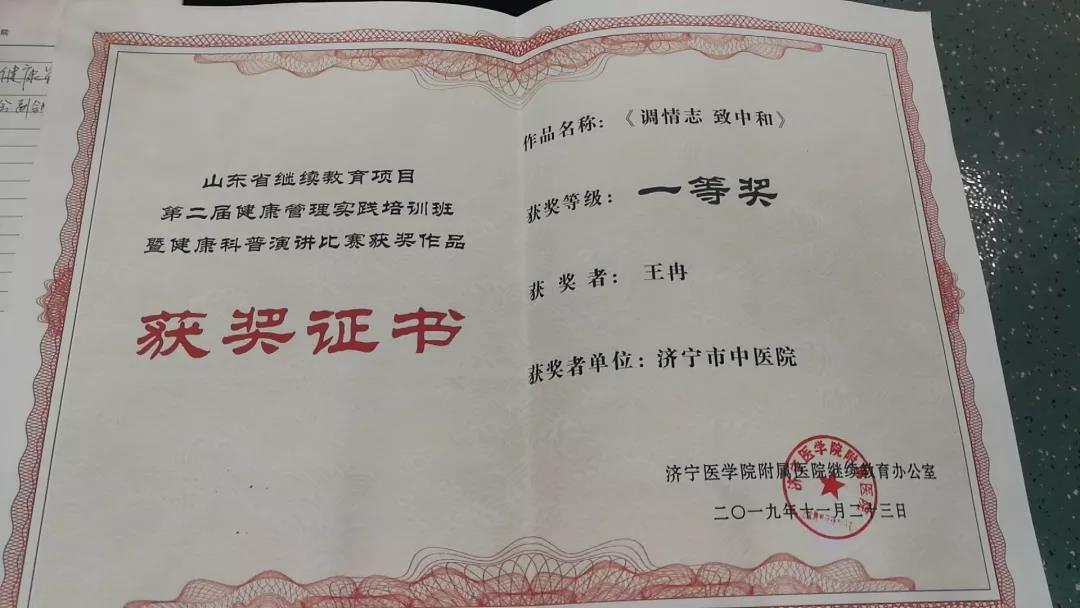 院
健康
山东省继续教育项目
第二届健康管理实践培训班
暨健康科普演讲比赛获奖作品
获奖证书
作品名称：《调情志 致中和》
获奖等级：一等奖
获 奖 者：王冉
获奖者单位：济宁市中医院
济宁医学院附属医院继续教育办公室
二〇一九年十一月二十三日
济宁医学院附属医院